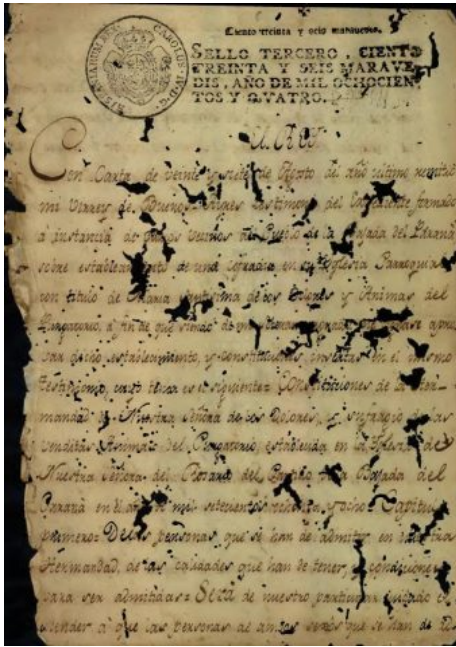 Ciento treinta y ocio maravedis.
SELLO TERCERO, CIENTO
TREINTA Y SEIS MARAVE-
DIS, AÑO DE MIL OCHOCIEN-
TOS Y QVATRO.
CAROLUS
El Rey
Con Carta de veinte y siete de Agosto del año ultimo remitió
mi Virrey de Buenos Ayres testimonio del Expediente formado
á instancia de varios vecinos del Pueblo de la Bajada del Paraná
sobre establecimiento de una cofradia en su Iglesia Parroquial
con titulo de Maria Santisima de los Dolores y Animas del
Purgatorio, á fin de que siendo de mi
dicho establecimiento, y constituciones insertas en el mismo
testimonio, cuyo tenor es el siguiente= Constituciones de la Her-
mandad de Nuestra Señora de los Dolores, y sufragio de las
venditas Animas del Purgatorio, establecida en la Iglesia de
Nuestra Señora del Rosario del Partido de la Bajada del
Paraná en el año de mil setecientos ochenta y ocho= Capitulo
primero= De las personas, que se han de admitir en nuestra
Hermandad, de las calidades que han de tener, y condiciones
para ser admitidas= Será de nuestro particular cuidado el
atender á que las personas de ambos sexos que se han de